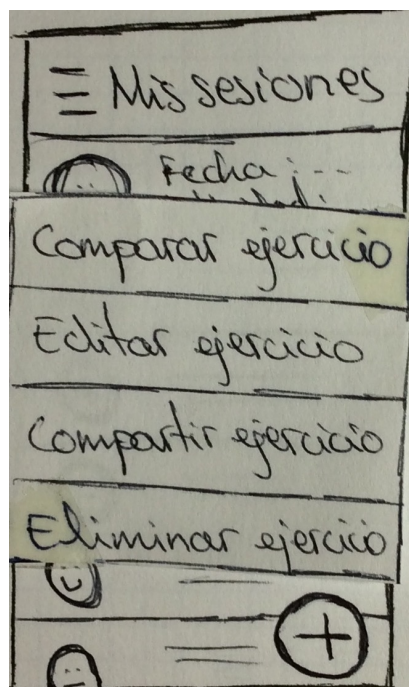 Mis sesiones
Fecha: ---
Comparar ejercicio
Editar ejercicio
Compartir ejercicio
Eliminar ejercicio